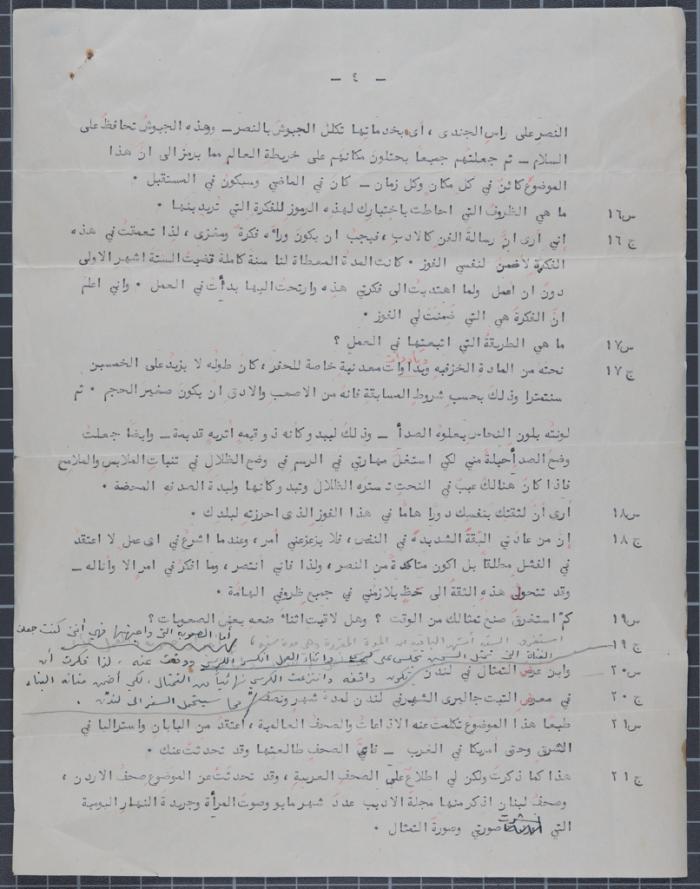 - ٤ -
النصر على راس الجندى ، أى بخدماتها تكلل الجيوش بالنصر — وهذه الجيوش تحافظ على
السلام — ثم جعلتهم جميعا يحتلون مكانهم على خريطة العالم مما يرمز الى ان هذا
الموضوع كائن في كل مكان وكل زمان — كان في الماضي وسيكون في المستقبل .
س١٦ ما هي الظروف التي احاطت باختيارك لهذه الرموز للفكرة التي تريدينها .
ج١٦ إني أرى ان رسالة الفن كالادب ، فيجب ان يكون وراءه فكرة ومغزى ، لذا تعمقت في هذه
الفكرة لاضمن لنفسي الفوز . كانت المدة المعطاة لنا سنة كاملة قضيت الستة اشهر الاولى
دون ان اعمل ولما اهتديت الى فكرتي هذه وارتحت اليها بدأت في العمل . واني اعلم
ان الفكرة هي التي ضمنت لي الفوز .
س١٧ ما هي الطريقة التي اتبعتها في العمل ؟
ج١٧ نحته من المادة الخزفيه وبأدوات معدنية خاصة للحفر ، كان طوله لا يزيد على الخمسين
سنتمترا وذلك بحسب شروط المسابقة فانه من الاصعب والادق ان يكون صغير الحجم . ثم
لونته بلون النحاس يعلوه الصدأ — وذلك ليبدو كأنه ذو قيمه أثريه قديمة — وايضا جعلت
وضع الصدأ حيلة مني لكي استغل مهارتي في الرسم في وضع الظلال في ثنيات الملابس والملامح
فاذا كان هنالك عيب في النحت تستره الظلال وتبدو كأنها وليدة الصدفه المحضة .
س١٨ أرى أن لثقتك بنفسك دورا هاما في هذا الفوز الذى احرزته لبلدك .
ج١٨ إن من عادتي الثقة الشديدة في النصر ، فلا يزعزعني أمر ، وعندما اشرع في اى عمل لا اعتقد
في الفشل مطلقا بل اكون متأكدة من النصر ، ولذا فاني أنتصر ، وما افكر في امر الا وأناله —
وقد تتحول هذه الثقة الى حظ يلازمني في جميع ظروفي الهامة .
س١٩ كم استغرق صنع تمثالك من الوقت ؟ وهل لاقيت اثناء صنعه بعض الصعوبات ؟
أما الصعوبة التي واجهتها فهي أنني كنت جعلت
ج١٩ استغرق الستة أشهر الباقية من المدة المقررة وهي مدة سنة ،
الفتاة التي تمثل تجلس على واثناء العمل انكسر الكرسي ووقعت عنه ، لذا فكرت أن
س٢٠ واين عرض التمثال في لندن
تكون واقفة وانتزعت الكرسي نهائيا من التمثال لكي أضمن متانة البناء
ج٢٠ في معرض التيت جاليرى الشهير في لندن لمدة شهر ونصف
سيتحمل السفر الى لندن .
س٢١ طبعا هذا الموضوع تكلمت عنه الاذاعات والصحف العالمية ، أعتقد من اليابان واستراليا في
الشرق وحتى أمريكا في الغرب — فأي الصحف طالعتها وقد تحدثت عنك .
ج٢١ هذا كما ذكرت ولكن لي اطلاع على الصحف العربية ، وقد تحدثت عن الموضوع صحف الاردن ،
وصحف لبنان اذكر منها مجلة الاديب عدد شهر مايو وصوت المرأة وجريدة النهار اليومية
التي نشرت صورتي وصورة التمثال .